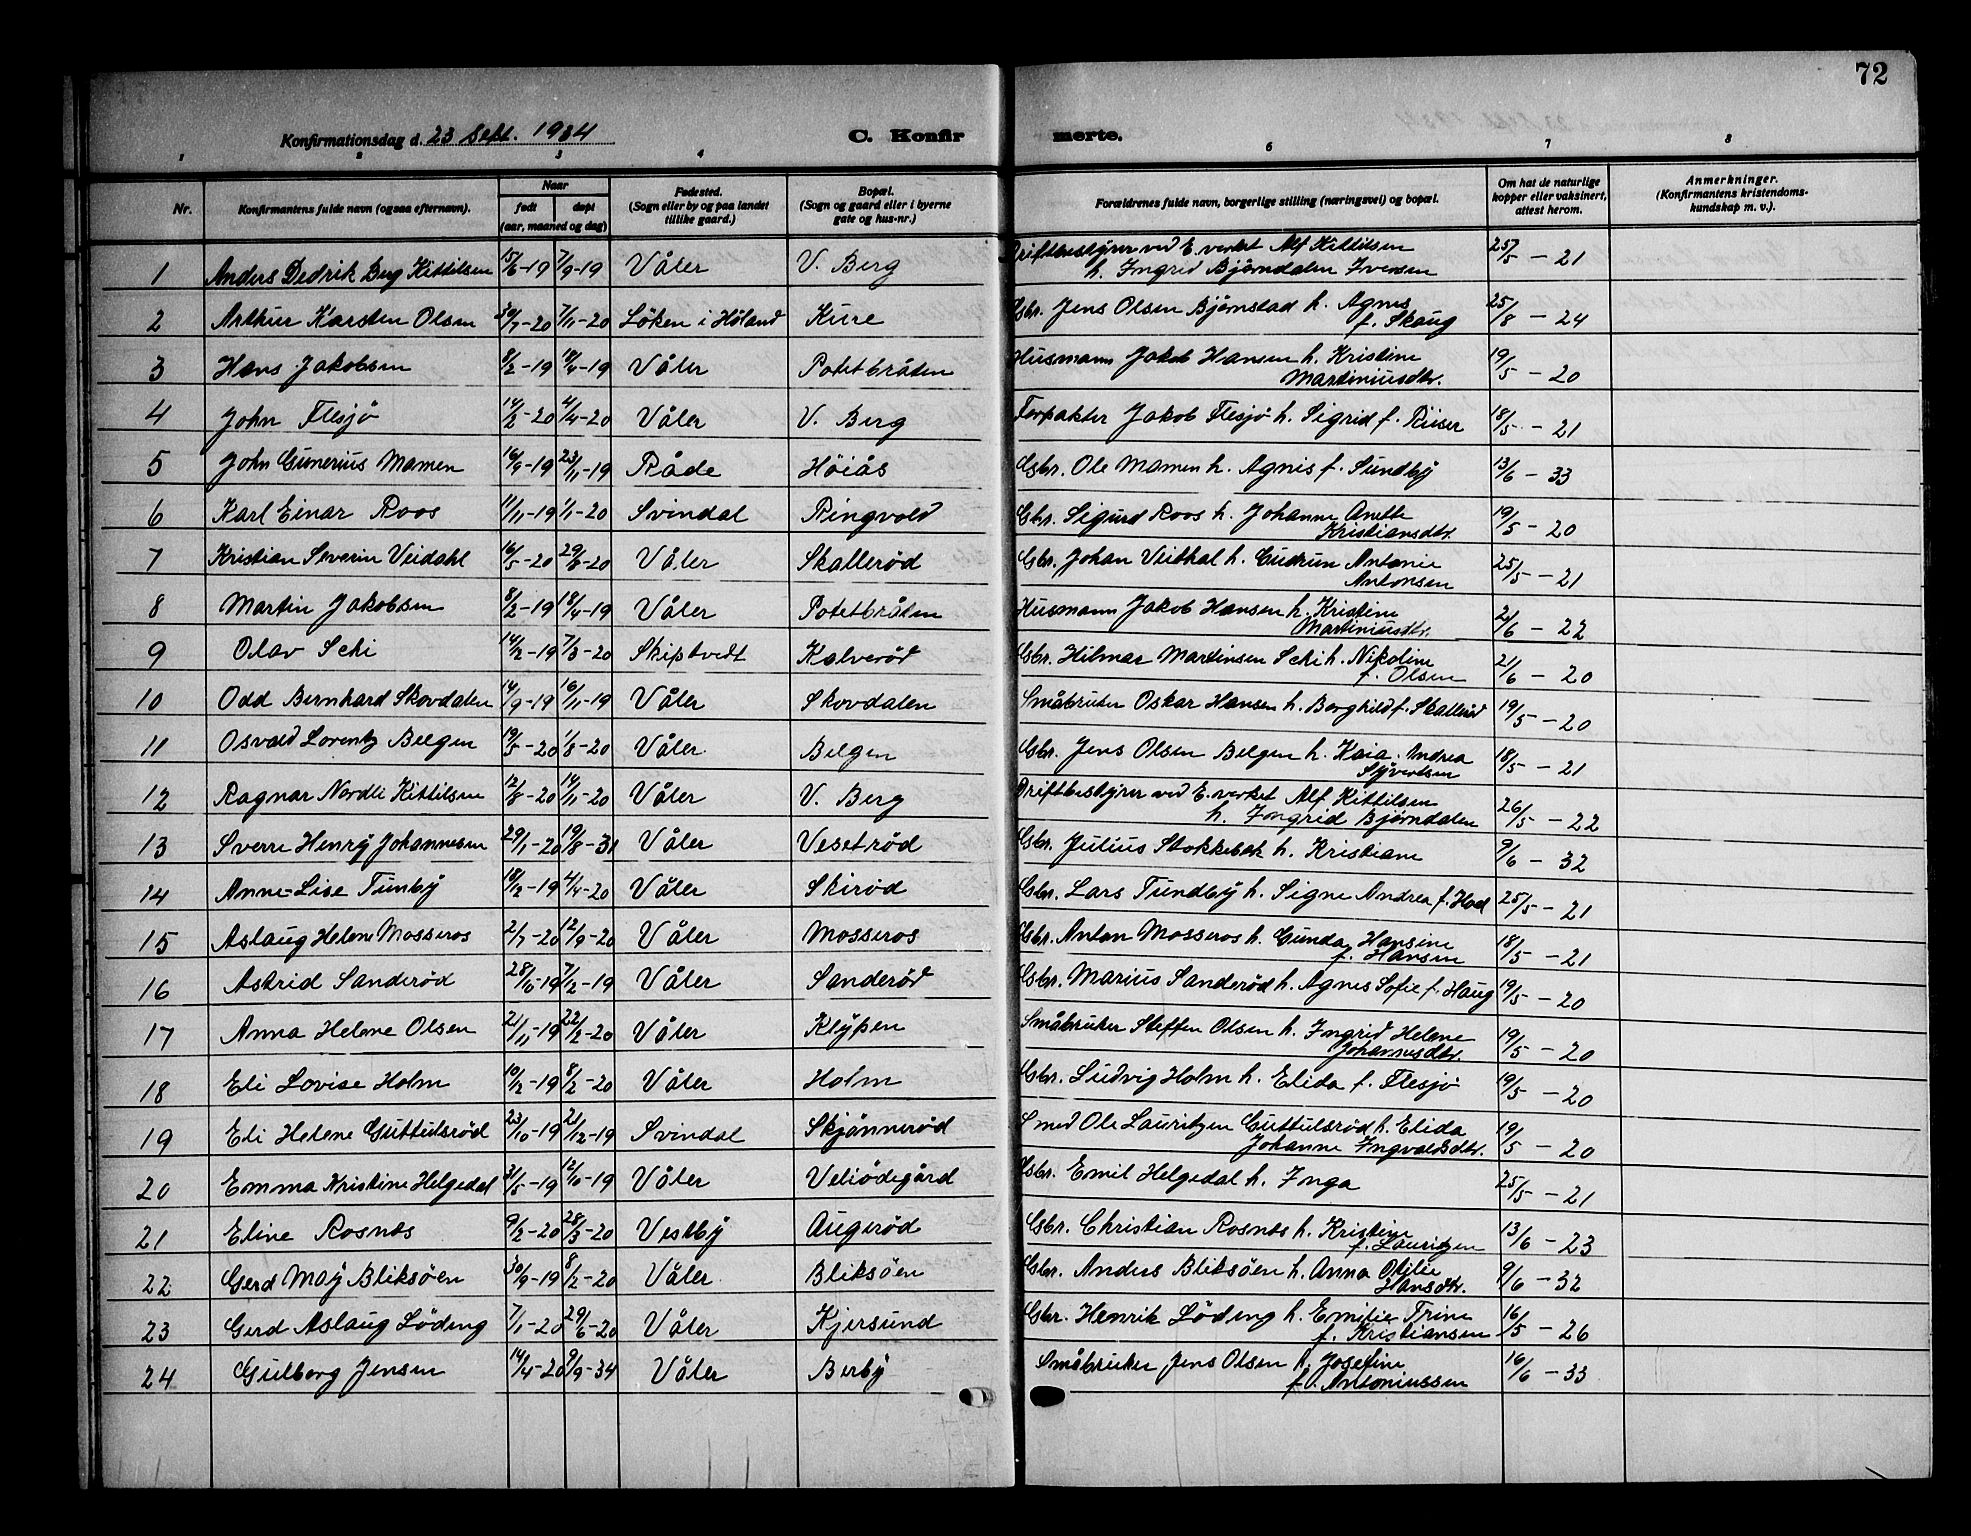 72
Konfirmationsdag d. 23 Sept. 1934 C. Konfirmerte.
1 2 3 4 5 6 7 8
Nr. | Konfirmantens fulde navn (ogsaa efternavn). | Naar født døpt (aar, maaned og dag) | Fødested. (Sogn eller by og paa landet tillike gaard.) | Bopæl. (Sogn og gaard eller i byerne gate og hus-nr.) | Forældrenes fulde navn, borgerlige stilling (næringsvei) og bopæl. | Om hat de naturlige kopper eller vaksinert, attest herom. | Anmerkninger. (Konfirmantens kristendomskundskap m. v.).
1 Anders Dedrik Berg Kittilsen 15/6-19 7/9-19 Våler V. Berg Driftbestyrer ved E.verket Alf Kittilsen h. Ingrid Bjørndalen Iversen 25/5-21
2 Arthur Karsten Olsen 30/7-20 7/11-20 Löken i Höland Kure Gbr. Jens Olsen Bjørnstad h. Agnes f. Skaug 25/8-24
3 Hans Jakobsen 8/2-19 18/4-19 Våler Potetbråten Husmann Jakob Hansen h. Kristine Martiniusdtr. 19/5-20
4 John Flesjø 14/2-20 4/4-20 Våler V. Berg Forpakter Jakob Flesjø h. Sigrid f. Riiser 18/5-21
5 John Gunerius Mamen 16/9-19 23/11-19 Råde Höiås Gbr. Ole Mamen h. Agnes f. Sundby 13/6-33
6 Karl Einar Roos 11/11-19 1/1-20 Svindal Ringvold Gbr. Sigurd Roos h. Johanne Anette Kristiansdtr. 19/5-20
7 Kristian Severin Veidahl 16/5-20 29/8-20 Våler Skalleröd Gbr. Johan Veidhal h. Gudrun Antonie Antonsen 25/5-21
8 Martin Jakobsen 8/2-19 18/4-19 Våler Potetbråten Husmann Jakob Hansen h. Kristine Martiniusdtr. 2/6-22
9 Olav Schi 14/2-19 7/3-20 Skiptvedt Kalveröd Gbr. Hilmar Martinsen Schi h. Nikoline f. Olsen 21/6-20
10 Odd Bernhard Skovdalen 14/9-19 16/11-19 Våler Skovdalen Småbruker Oskar Hansen h. Borghild f. Skalleröd 19/5-20
11 Osvald Lorentz Belgen 19/5-20 1/8-20 Våler Belgen Gbr. Jens Olsen Belgen h. Kaia Andrea Syvertsen 18/5-21
12 Ragnar Nordli Kittilsen 12/8-20 14/11-20 Våler V. Berg Driftbestyrer ved E.verket Alf Kittilsen h. Ingrid Bjørndalen 26/5-22
13 Sverre Henry Johannesen 29/1-20 19/8-31 Våler Veseröd Gbr. Julius Stokkebæk h. Kristiane 9/6-32
14 Anne-Lise Tunby 18/12-19 4/4-20 Våler Skiröd Gbr. Lars Tundby h. Signe Andrea f. Hoel 25/5-21
15 Aslaug Helene Mosseros 2/7-20 12/9-20 Våler Mosseros Gbr. Anton Mosseros h. Gunda Hansine f. Hansen 18/5-21
16 Astrid Sanderöd 28/10-19 7/12-19 Våler Sanderöd Gbr. Marius Sanderöd h. Agnes Sofie f. Haug 19/5-20
17 Anna Helene Olsen 21/11-19 22/2-20 Våler Klypen Småbruker Steffen Olsen h. Ingrid Helene Johannesdtr. 19/5-20
18 Eli Lovise Holm 10/12-19 8/2-20 Våler Holm Gbr. Ludvig Holm h. Elida f. Flesjø 19/5-20
19 Eli Helene Guttulsröd 23/10-19 21/12-19 Svindal Skjönneröd Smed Ole Lauritzen Guttulsröd h. Elida Johanne Ingvaldsdtr. 19/5-20
20 Emma Kristine Helgedal 31/5-19 12/10-19 Våler Veliödegård Gbr. Emil Helgedal h. Inga 25/5-21
21 Eline Rosnæs 9/2-20 28/3-20 Vestby Augeröd Gbr. Christian Rosnæs h. Kristine f. Lauritzen 13/6-23
22 Gerd May Bliksöen 30/9-19 8/2-20 Våler Bliksöen Gbr. Anders Bliksöen h. Anna Otilie Hansdtr. 9/6-32
23 Gerd Aslaug Löding 7/1-20 29/6-20 Våler Kjersund Gbr. Henrik Löding h. Emilie Trine f. Kristiansen 16/5-26
24 Gulborg Jensen 14/4-20 9/9-34 Våler Berby Småbruker Jens Olsen h. Josefine f. Antoniussen 16/6-33